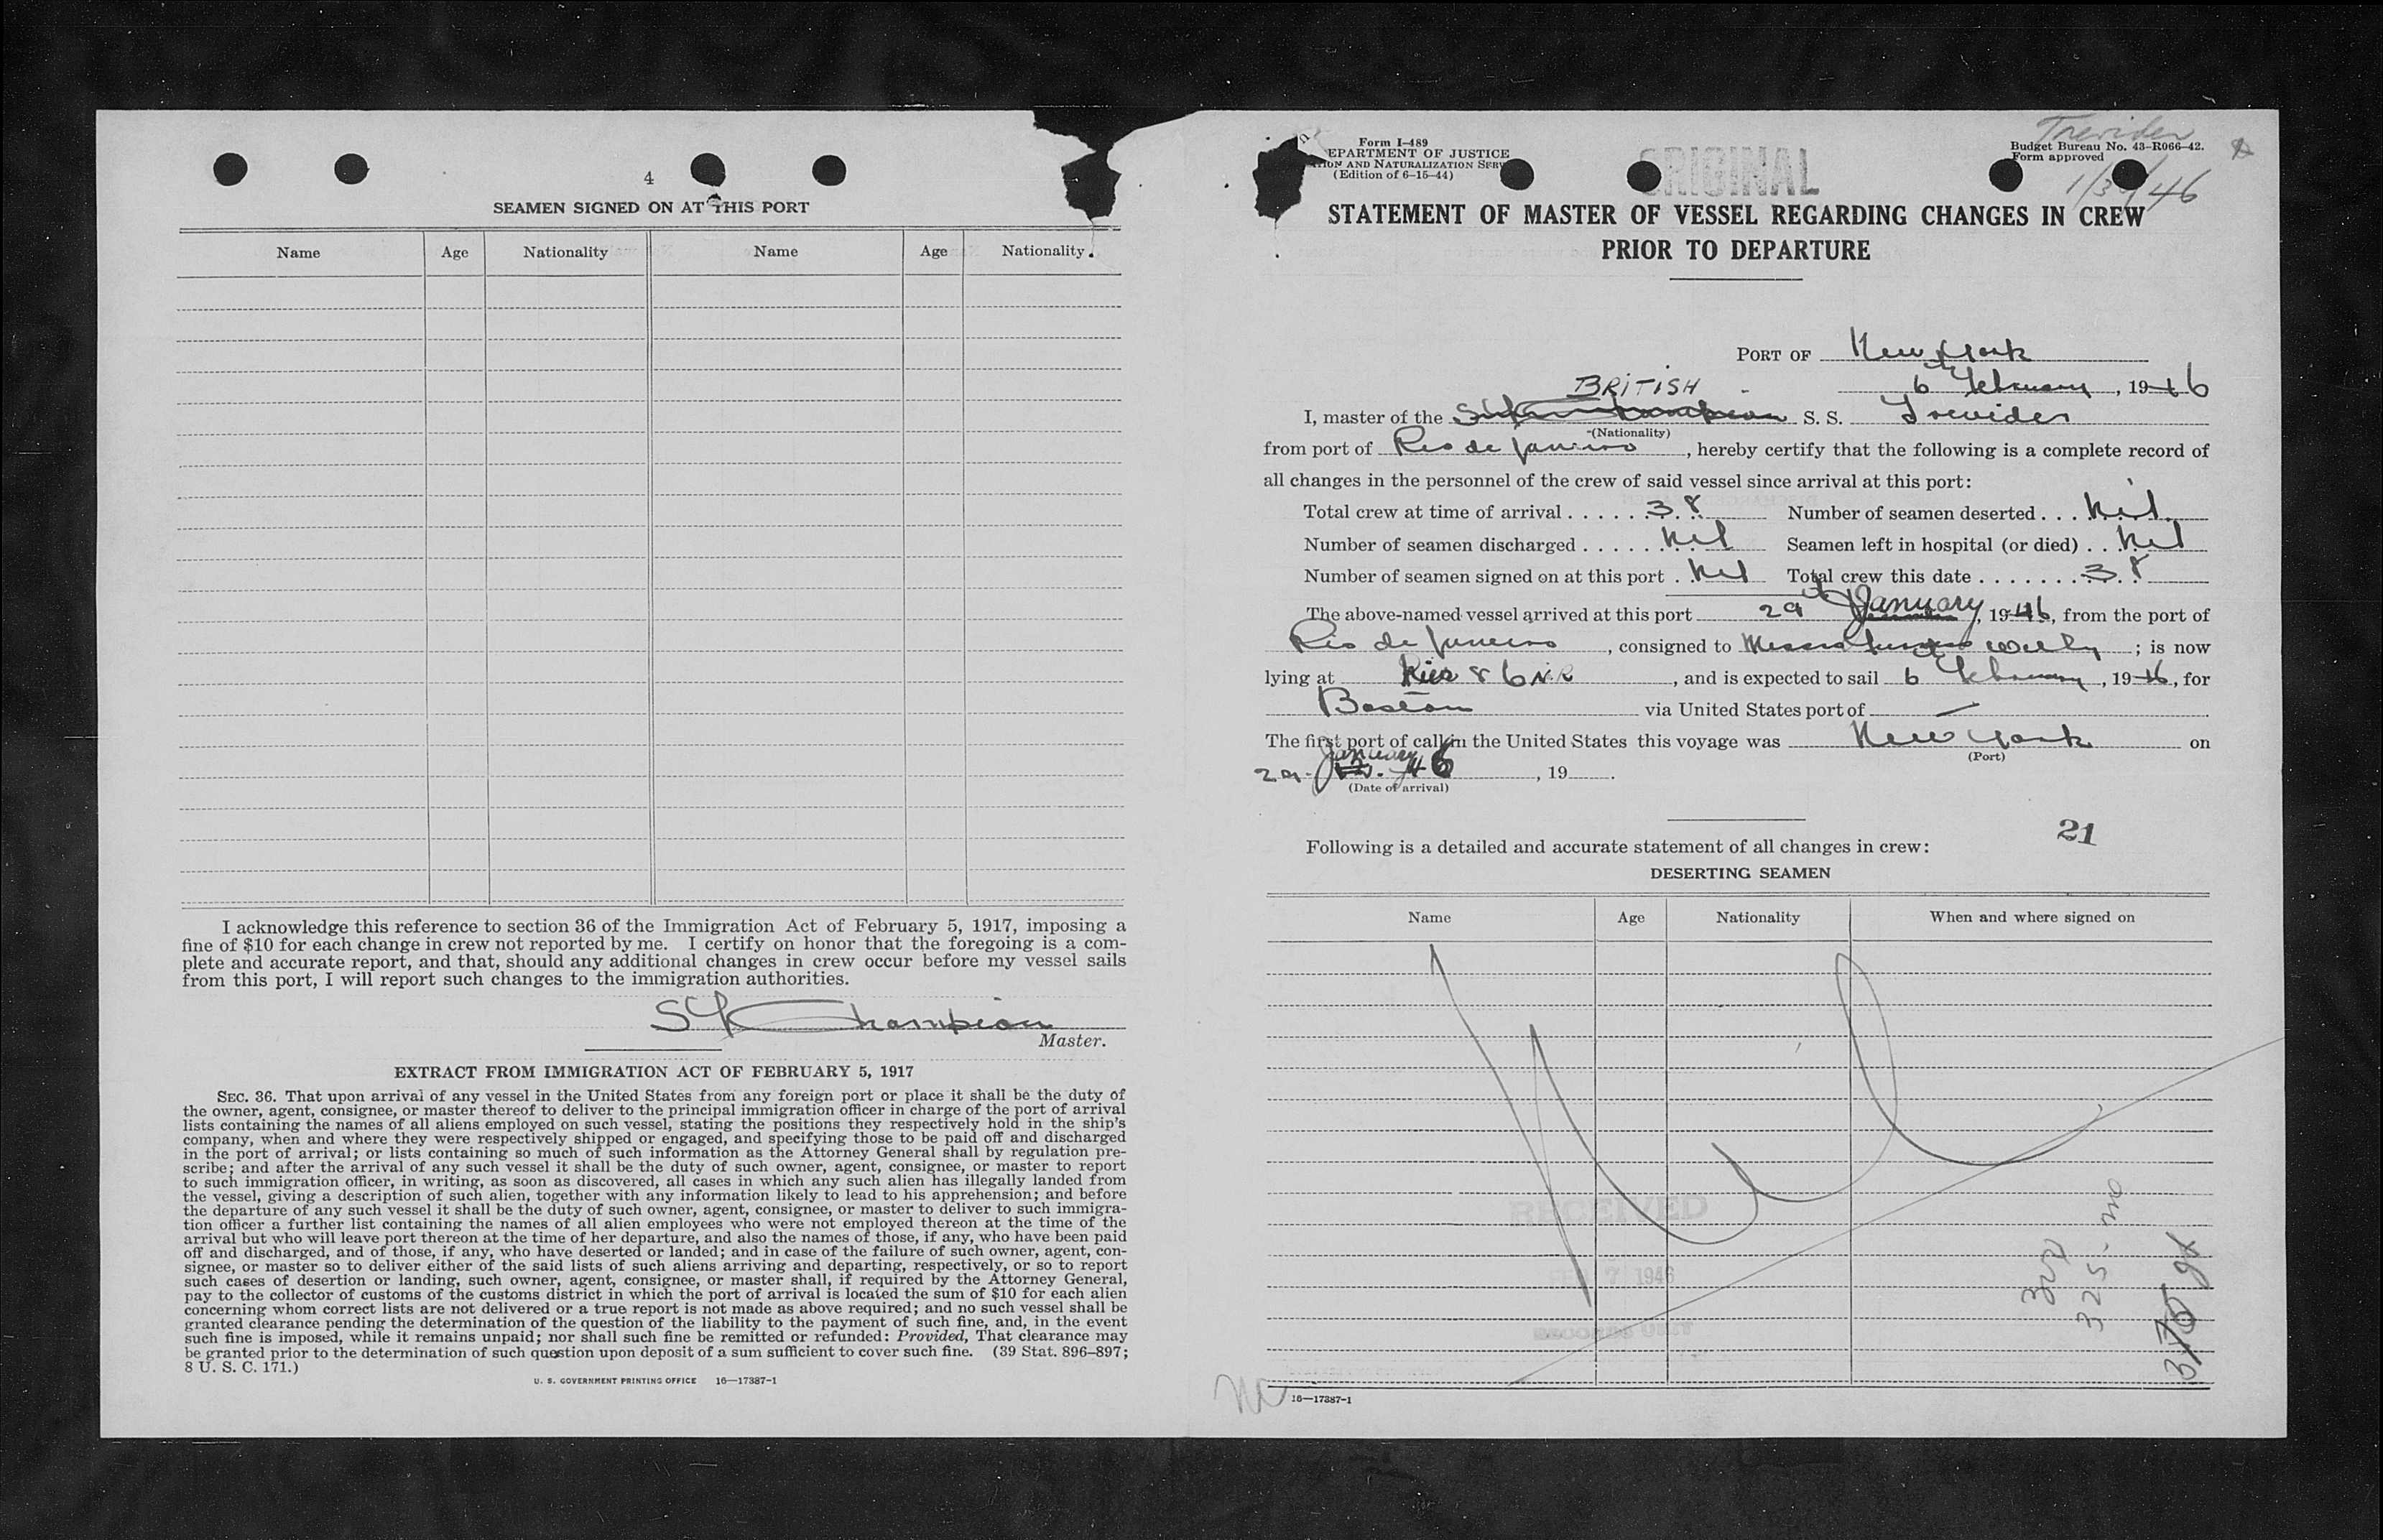 4
SEAMEN SIGNED ON AT THIS PORT
Name Age Nationality Name Age Nationality
I acknowledge this reference to section 36 of the Immigration Act of February 5, 1917, imposing a
fine of $10 for each change in crew not reported by me. I certify on honor that the foregoing is a com-
plete and accurate report, and that, should any additional changes in crew occur before my vessel sails
from this port, I will report such changes to the immigration authorities.
Champion
Master.
EXTRACT FROM IMMIGRATION ACT OF FEBRUARY 5, 1917
SEC. 36. That upon arrival of any vessel in the United States from any foreign port or place it shall be the duty of
the owner, agent, consignee, or master thereof to deliver to the principal immigration officer in charge of the port of arrival
lists containing the names of all aliens employed on such vessel, stating the positions they respectively hold in the ship's
company, when and where they were respectively shipped or engaged, and specifying those to be paid off and discharged
in the port of arrival; or lists containing so much of such information as the Attorney General shall by regulation pre-
scribe; and after the arrival of any such vessel it shall be the duty of such owner, agent, consignee, or master to report
to such immigration officer, in writing, as soon as discovered, all cases in which any such alien has illegally landed from
the vessel, giving a description of such alien, together with any information likely to lead to his apprehension; and before
the departure of any such vessel it shall be the duty of such owner, agent, consignee, or master to deliver to such immigra-
tion officer a further list containing the names of all alien employees who were not employed thereon at the time of the
arrival but who will leave port thereon at the time of her departure, and also the names of those, if any, who have been paid
off and discharged, and of those, if any, who have deserted or landed; and in case of the failure of such owner, agent, con-
signee, or master so to deliver either of the said lists of such aliens arriving and departing, respectively, or so to report
such cases of desertion or landing, such owner, agent, consignee, or master shall, if required by the Attorney General,
pay to the collector of customs of the customs district in which the port of arrival is located the sum of $10 for each alien
concerning whom correct lists are not delivered or a true report is not made as above required; and no such vessel shall be
granted clearance pending the determination of the question of the liability to the payment of such fine, and, in the event
such fine is imposed, while it remains unpaid; nor shall such fine be remitted or refunded: Provided, That clearance may
be granted prior to the determination of such question upon deposit of a sum sufficient to cover such fine. (39 Stat. 896–897;
8 U. S. C. 171.)
U. S. GOVERNMENT PRINTING OFFICE 16—17387-1
Trevider
Form I-489
EPARTMENT OF JUSTICE
TION AND NATURALIZATION SERV
(Edition of 6-15-44)
ORIGINAL
Budget Bureau No. 43-R066-42.
Form approved
1/30/46
STATEMENT OF MASTER OF VESSEL REGARDING CHANGES IN CREW
PRIOR TO DEPARTURE
PORT OF New York
6th February, 1946
BRITISH
I, master of the S. S. Trevider
(Nationality)
from port of Rio de Janeiro, hereby certify that the following is a complete record of
all changes in the personnel of the crew of said vessel since arrival at this port:
Total crew at time of arrival 38 Number of seamen deserted Nil
Number of seamen discharged Nil Seamen left in hospital (or died) Nil
Number of seamen signed on at this port Nil Total crew this date 38
The above-named vessel arrived at this port 29th January, 1946, from the port of
Rio de Janeiro, consigned to Messrs Wilby; is now
lying at Pier 86 N.R, and is expected to sail 6th February, 1946, for
Boston via United States port of —
The first port of call in the United States this voyage was New York on
(Port)
29. January 46, 19 .
(Date of arrival)
21
Following is a detailed and accurate statement of all changes in crew:
DESERTING SEAMEN
Name Age Nationality When and where signed on
Nil
RECEIVED
FEB 7 1946
RECORDS UNIT
325
16—17387-1